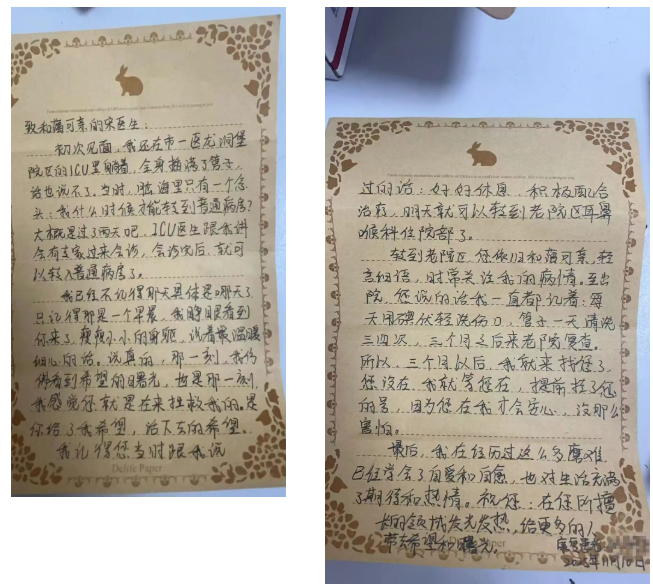 致和蔼可亲的宋医生：
初次见面，我还在市一医龙洞堡
院区的ICU里躺着，全身插满了管子，
话也说不了。当时，脑海里只有一个念
头：我什么时候才能转到普通病房？
大概是过了两天吧，ICU医生跟我科
会有专家过来会诊，会诊完后，就可
以转入普通病房了。
我已经不记得那天具体是哪天了
只记得那是一个早晨，我睁眼看到
你来了，瘦瘦小小的身躯，说着最温暖
细心的话。说真的，那一刻，我仿
佛看到希望的曙光，也是那一刻，
我感觉您就是在来拯救我的。是
你给了我希望，活下去的希望。
我记得您当时跟我说
Delife Paper
过的话：好好休息，积极配合
治疗，明天就可以转到老院区耳鼻
喉科住院部了。
转到老院区，您依旧和蔼可亲，轻
言细语，时常关注我的病情。至出
院，您说的话我一直都记着：每
天用碘伏轻洗伤口，管子一天清洗
三四次，三个月之后来老院复查。
所以，三个月以后，我就来找您了，
您没在，我就等您在，提前挂了您
的号，因为您在我才会安心，没那么
害怕。
最后，我在经历过这么多磨难，
已经学会了自爱和自愈，也对生活充满
了期待和热情。祝您：在您所擅
长的领域发光发热，给更多的人
带去希望和曙光。
2023年11月10日